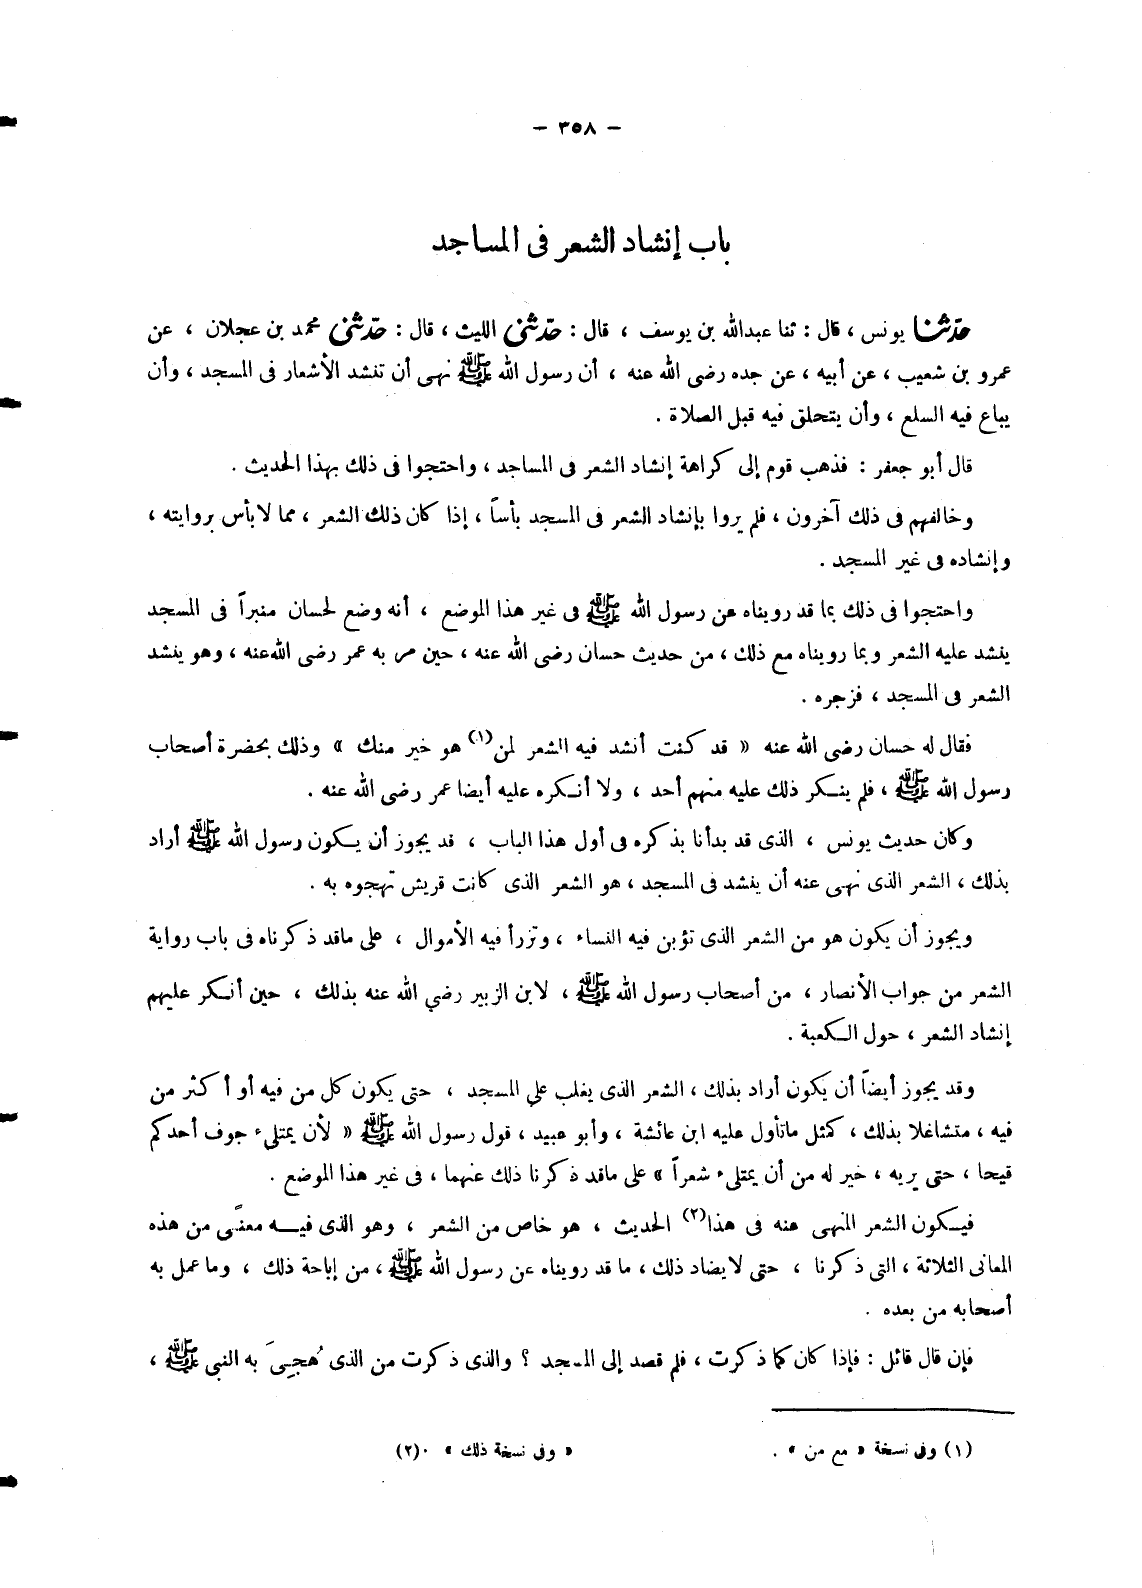 — ٣٥٨ —
باب إنشاد الشعر فى المساجد
حدثنا يونس ، قال : ثنا عبدالله بن يوسف ، قال : حدثنى الليث ، قال : حدثنى محمد بن عجلان ، عن
عمرو بن شعيب ، عن أبيه ، عن جده رضى الله عنه ، أن رسول الله ﷺ نهى أن تنشد الأشعار فى المسجد ، وأن
يباع فيه السلع ، وأن يتحلق فيه قبل الصلاة .
قال أبو جعفر : فذهب قوم إلى كراهة إنشاد الشعر فى المساجد ، واحتجوا فى ذلك بهذا الحديث .
وخالفهم فى ذلك آخرون ، فلم يروا بإنشاد الشعر فى المسجد بأساً ، إذا كان ذلك الشعر ، مما لا بأس بروايته ،
وإنشاده فى غير المسجد .
واحتجوا فى ذلك بما قد رويناه عن رسول الله ﷺ فى غير هذا الموضع ، أنه وضع لحسان منبراً فى المسجد
ينشد عليه الشعر وبما رويناه مع ذلك ، من حديث حسان رضى الله عنه ، حين مر به عمر رضى الله عنه ، وهو ينشد
الشعر فى المسجد ، فزجره .
فقال له حسان رضى الله عنه « قد كنت أنشد فيه الشعر لمن(١) هو خير منك » وذلك بحضرة أصحاب
رسول الله ﷺ ، فلم ينكر ذلك عليه منهم أحد ، ولا أنكره عليه أيضا عمر رضى الله عنه .
وكان حديث يونس ، الذى قد بدأنا بذكره فى أول هذا الباب ، قد يجوز أن يكون رسول الله ﷺ أراد
بذلك ، الشعر الذى نهى عنه أن ينشد فى المسجد ، هو الشعر الذى كانت قريش تهجوه به .
ويجوز أن يكون هو من الشعر الذى تؤبن فيه النساء ، وتزرأ فيه الأموال ، على ماقد ذكرناه فى باب رواية
الشعر من جواب الأنصار ، من أصحاب رسول الله ﷺ ، لابن الزبير رضي الله عنه بذلك ، حين أنكر عليهم
إنشاد الشعر ، حول الكعبة .
وقد يجوز أيضاً أن يكون أراد بذلك ، الشعر الذى يغلب على المسجد ، حتى يكون كل من فيه أو أكثر من
فيه ، متشاغلا بذلك ، كمثل ماتأول عليه ابن عائشة ، وأبو عبيد ، قول رسول الله ﷺ « لأن يمتلىء جوف أحدكم
قيحا ، حتى يريه ، خير له من أن يمتلىء شعراً » على ماقد ذكرنا ذلك عنهما ، فى غير هذا الموضع .
فيكون الشعر المنهى عنه فى هذا(٢) الحديث ، هو خاص من الشعر ، وهو الذى فيه معنًى من هذه
المعانى الثلاثة ، التى ذكرنا ، حتى لا يضاد ذلك ، ما قد رويناه عن رسول الله ﷺ ، من إباحة ذلك ، وما عمل به
أصحابه من بعده .
فإن قال قائل : فإذا كان كما ذكرت ، فلم قصد إلى المسجد ؟ والذى ذكرت من الذى هُجِىَ به النبى ﷺ ،
(١) وفى نسخة « مع من » .
(٢)٠ « وفى نسخة ذلك »